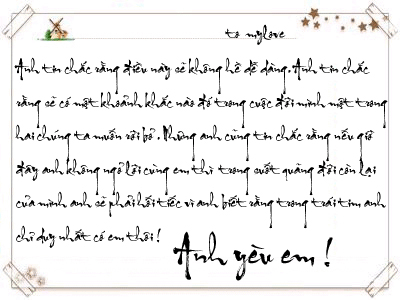 to mylove
Anh tin chắc rằng điều này sẽ không hề dễ dàng. Anh tin chắc
rằng sẽ có một khoảnh khắc nào đó trong cuộc đời mình một trong
hai chúng ta muốn rời bỏ. Nhưng anh cũng tin chắc rằng nếu giờ
đây anh không ngỏ lời cùng em thì trong suốt quãng đời còn lại
của mình anh sẽ phải hối tiếc vì anh biết rằng trong trái tim anh
chỉ duy nhất có em thôi!
Anh yêu em!